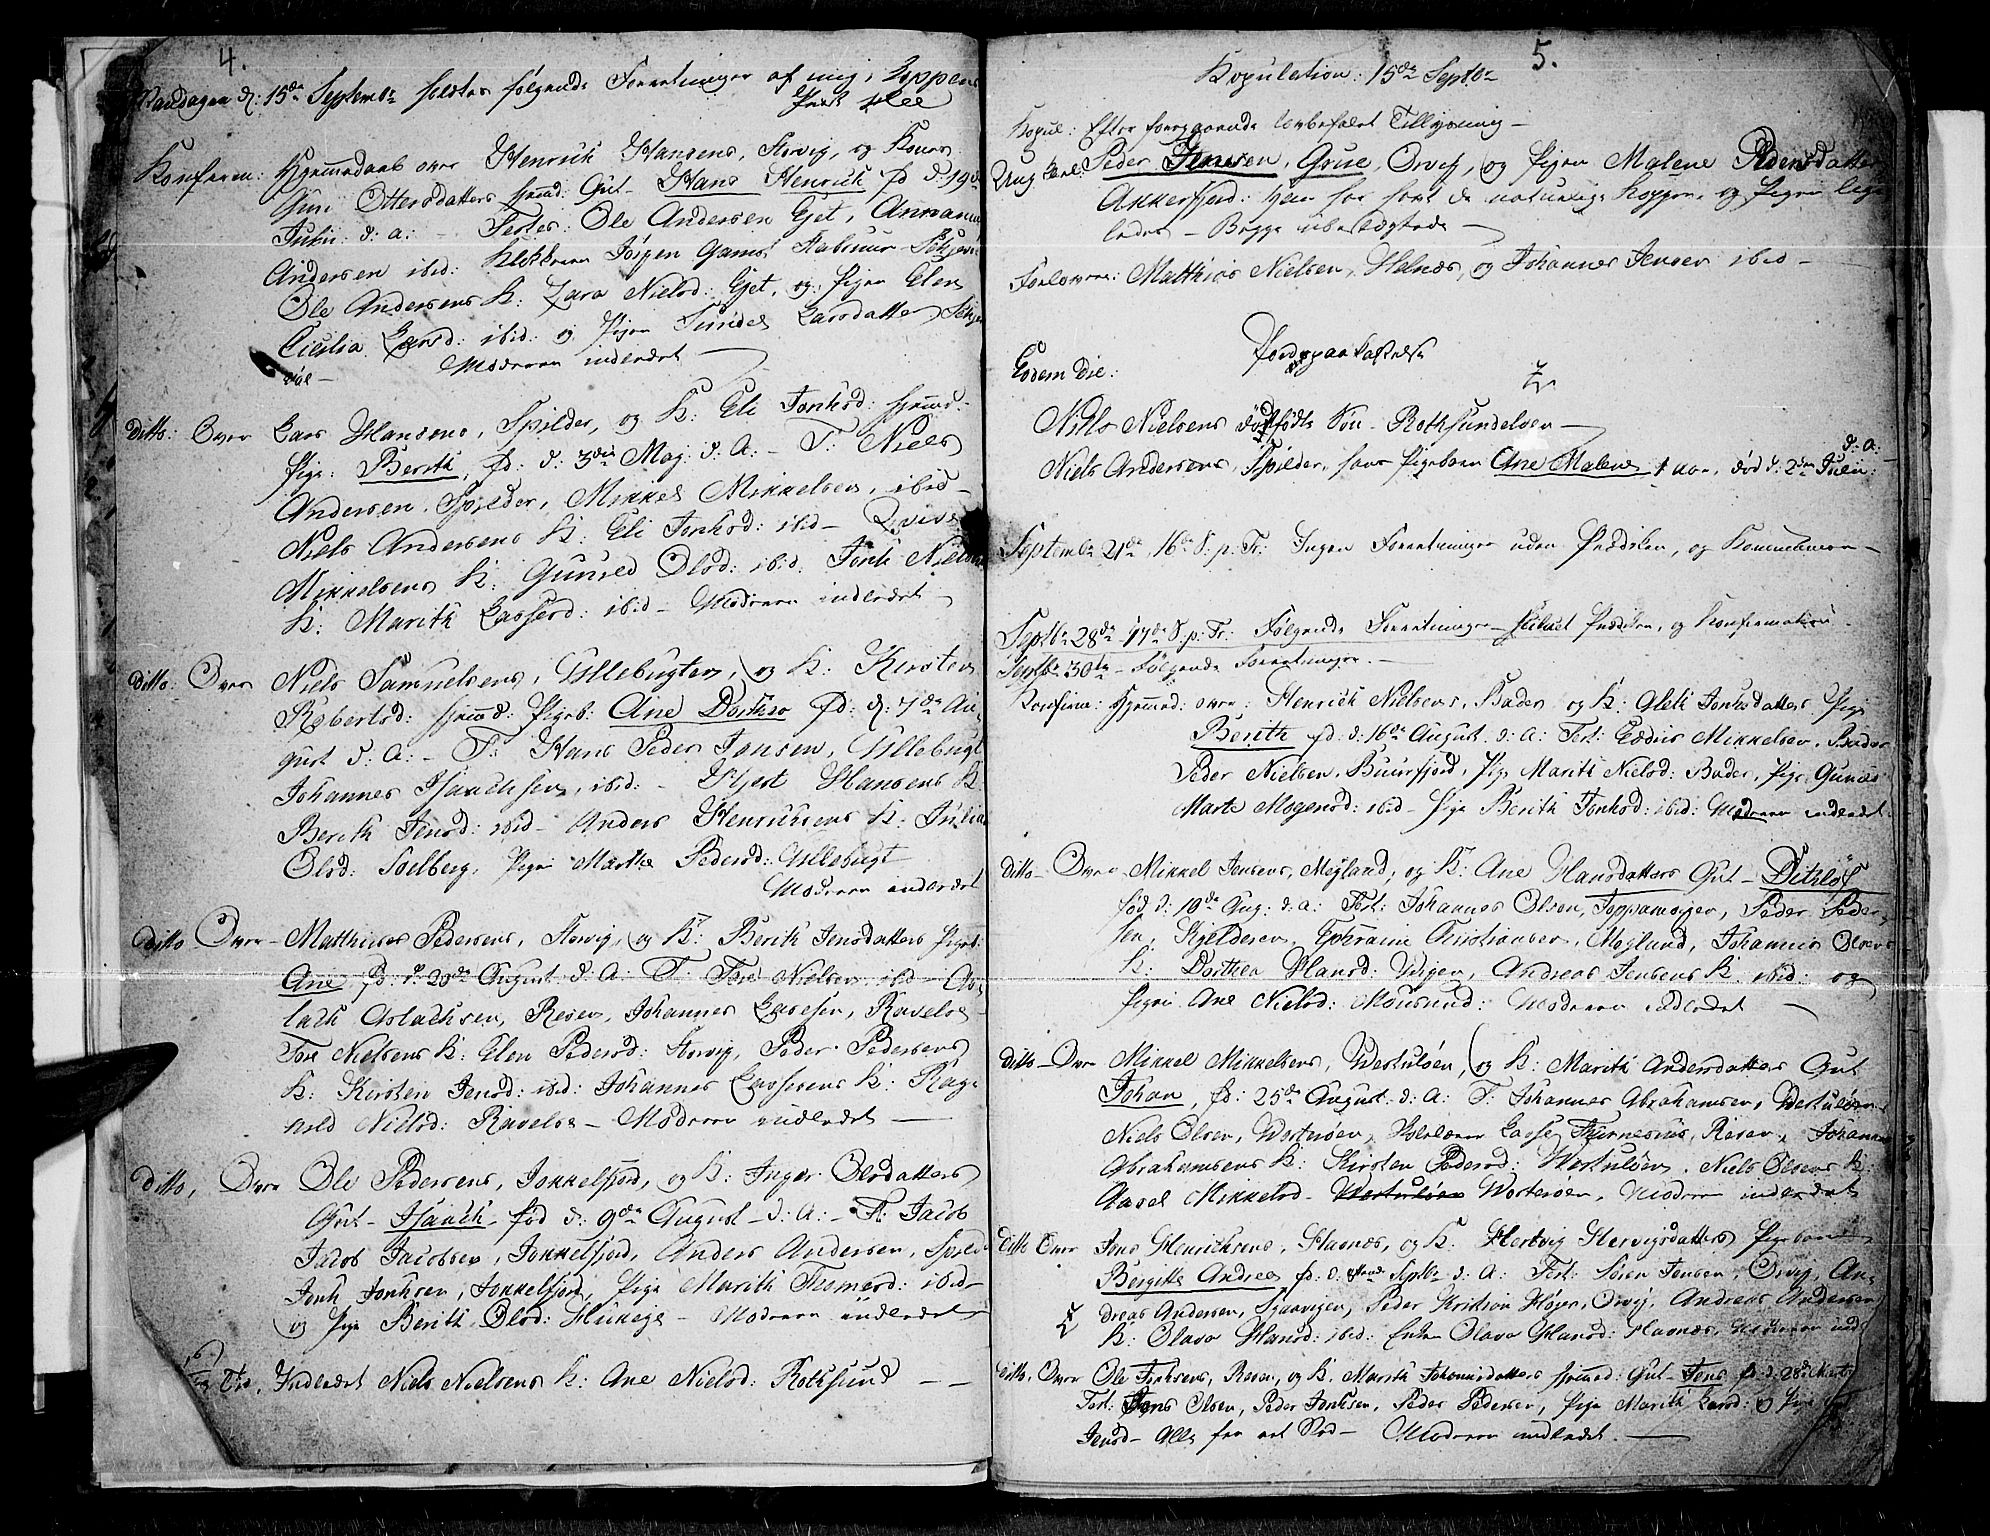 4.
d: 15de Septembr holdtes følgende Forretninger af mig, Loppens
Konfirm: Hjemmedaab over Henrich Hansens, Storvig, og Kones
Guri Ottersdatters hjmd: Gut - Hans Henrich fd d. 19de
Julii: d: a: - Testes: Ole Andersen Eget, Anna
Andersen ibid: Klokkeren Jørgen Gams,
Ole Andersens K: Zara Nielsd: Eget, og Pigen Elen
Cicilia Larsd: ibid: og Pigen Larsdatter,
Moderen indledet
Ditto: Over Lars Hansens, Spilder, og K: Eli Jonhsd: hjmd:
Pige: Berith, fd: d: 3die Maj: d: A: - T: Niels
Andersen, Spilder, Mikkel Mikkelsen, ibid -
Niels Andersens K: Eli Jonhsd: ibid -
Mikkelsens K: Gunild Olsd: ibid: Jonh Nielsens
K: Marith Lassesd: ibid - Moderen indledet
Ditto: Over Niels Samuelsens, Ullebugten, og K: Kirsten
Robertsd: hjmd: Pigeb: Ane Dorthea fd: d: 7de Au-
gust d: A: - T: Hans Peder Jonsen, Ullebugt
Johannes Isachsen, ibid: - Hansens K:
Berith Jensd: ibid - Anders Henrichsens K: Julia
Olsd: Soelberg, Pigen Marthe Pedersd: Ullebugt
Moderen indledet
Ditto Over - Matthias Pedersens, Storvig, og K: Berith Jensdatters Pigeb:
Ane fd: d: 20de August d: A: T: Tore Nielsen ibid - As-
lach Aslachsen, Resen, Johannes Lassesen, Ravelse -
Tore Nielsens K: Elen Pedersd: Storvig, Peder Pedersens
K: Kirsten Jensd: ibid: Johannes Lassesens K: Rag-
nild Nielsd: Ravelse - Moderen indledet
Ditto, Over Ole Pedersens, Jokkelfjord, og K: Inger Olsdatters
Gut - Isach - fød d: 9de August - d: A: - T: Jacob
Jacob Jacobsen, Jokkelfjord, Anders Andersen,
Jonh Jonhsen, Jokkelfjord, Pige Marith Thomasd: ibid -
og Pige Berith Olsd: - Moderen indledet
Indledet Niels Nielsens K: Ane Nielsd: Rothsund - -
5.
Kopulation: 15de Septbr
Kopul: Efter foregaaende lovbefalet Tillysning -
Ung Karl: Peder Jensen, Grue, Orvig, og Pigen Malene Pedersdatter
Akkerfjord: Han har havt de naturlige Kopper, og Pigen lige-
ledes - Begge ubeslægtede -
Forlovere: Matthias Nielsen, Helnæs, og Johannes Jensen ibid -
Eodem Die: Jordpaakastelse
Niels Nielsens dødfødte Søn - Rothsundelven -
Niels Andersens, Spilder, hans Pigebarn Ane Malene 1 aar, død d. 2den Julii: d: a:
Septembr 21de, 16de S: p: Tr: Ingen Forretninger uden Prædiken, og Kommunion -
Septbr 28de 17de S: p: Tr: Følgende Forretninger - Prædiken, og Konfirmation -
Septbr 30te - Følgende Forretninger. -
Konfirm: Hjemmed: over: Henrich Nielsens, Bader og K: Jonhsdatters Pige
Berith fd: d: 16de August: d: A: Test: Mikkelsen, Bader
Peder Nielsen, Buursfjord, Pige Marith Nielsd: Bader, Pige
Marte Mogensd: ibid - Pige Berith Jonhsd: ibid: Moderen indledet
Ditto - Over Mikkel Jensens, Meyland, og K: Ane Hansdatters Gut - Dithlöf
fød d: 10de Aug: d: a: Test: Johannes Olsen, Toppamøigen, Peder Peder-
sen, Ephraim Christiansen, Meyland, Johannes Olsens
K: Dorthea Hansd: Andreas Jensens K ibid: og
Pigen Ane Nielsd: Mousund: Moderen indledet -
Ditto - Over Mikkel Mikkelsens, Westuløen, og K: Marith Andersdatters Gut
Johan, fd: 25de August: d: A: T: Johannes Abrahamsen, Westuløen
Niels Olsen, Westerøen, Lasse Resen, Johannes
Abrahamsens K: Kirsten Pedersd: Westuløen, Niels Olsens K:
Aasel Mikkelsd - Westuløen Westerøen, Moderen indledet
Ditto Over Jens Henrichsens, Hasnæs, og K: Hertvig Hervigsdatters Pigebarn
Birgitte Andrea fd: d: Septbr d: A: Test: Søren Jensen, Orvig, An-
dreas Andersen, Peder Kristian Høyer, Orvig, Andreas Andersens
K: Olava Hansd: ibid: Enken Olava Hansd: Hasnæs,
Ditto. Over Ole Jonhsens, Resen, og K. Marith Johannisdatters hjmd: Gut - Jens fd: d. 28de
Test: Jens Olsen, Peder Jonhsen, Peder Pedersen, Pige Marith Larsd: og Pige
Jensd - Alle fra et Sted - Moderen indledet. -